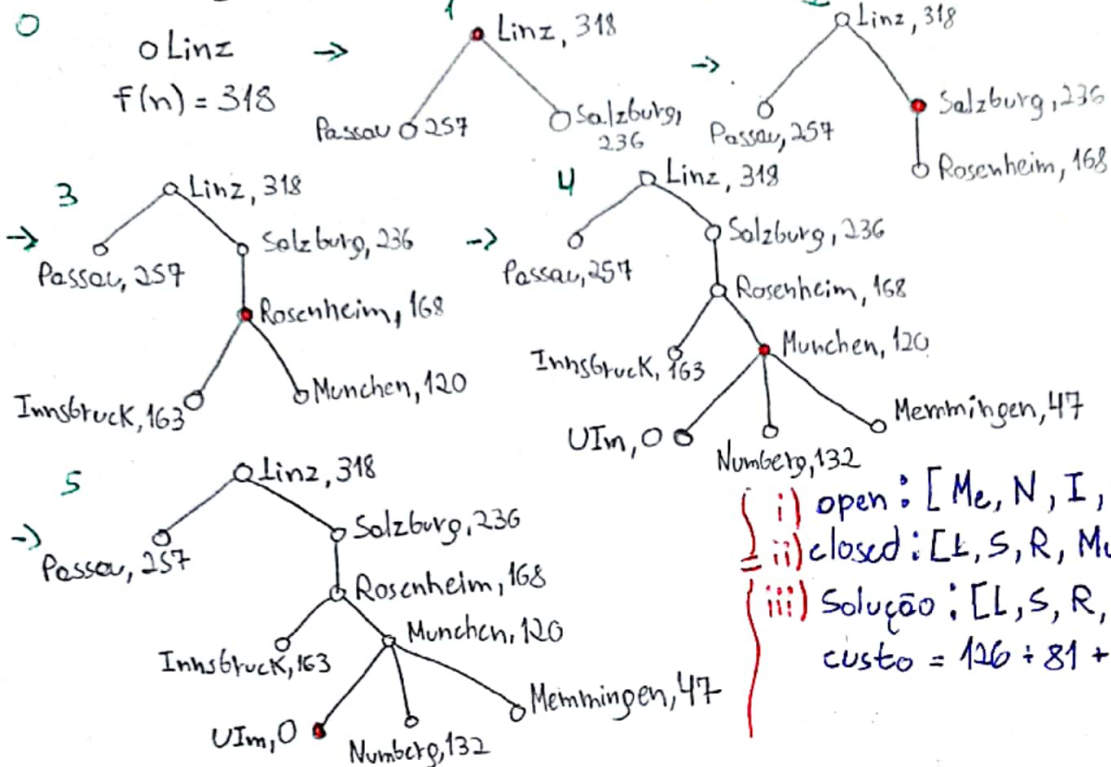 0
o Linz
f(n) = 318
->
1
Linz, 318
Passau 257
Salzburg, 236
->
Linz, 318
Passau, 257
Salzburg, 236
Rosenheim, 168
->
3
Linz, 318
Passau, 257
Salzburg, 236
Rosenheim, 168
Innsbruck, 163
Munchen, 120
->
4
Linz, 318
Passau, 257
Salzburg, 236
Rosenheim, 168
Innsbruck, 163
Munchen, 120
Ulm, 0
Numberg, 132
Memmingen, 47
->
5
Linz, 318
Passau, 257
Salzburg, 236
Rosenheim, 168
Innsbruck, 163
Munchen, 120
Ulm, 0
Numberg, 132
Memmingen, 47
i) open : [Me, N, I,
ii) closed : [L, S, R, Mu
iii) Solução : [L, S, R,
custo = 126 + 81 +